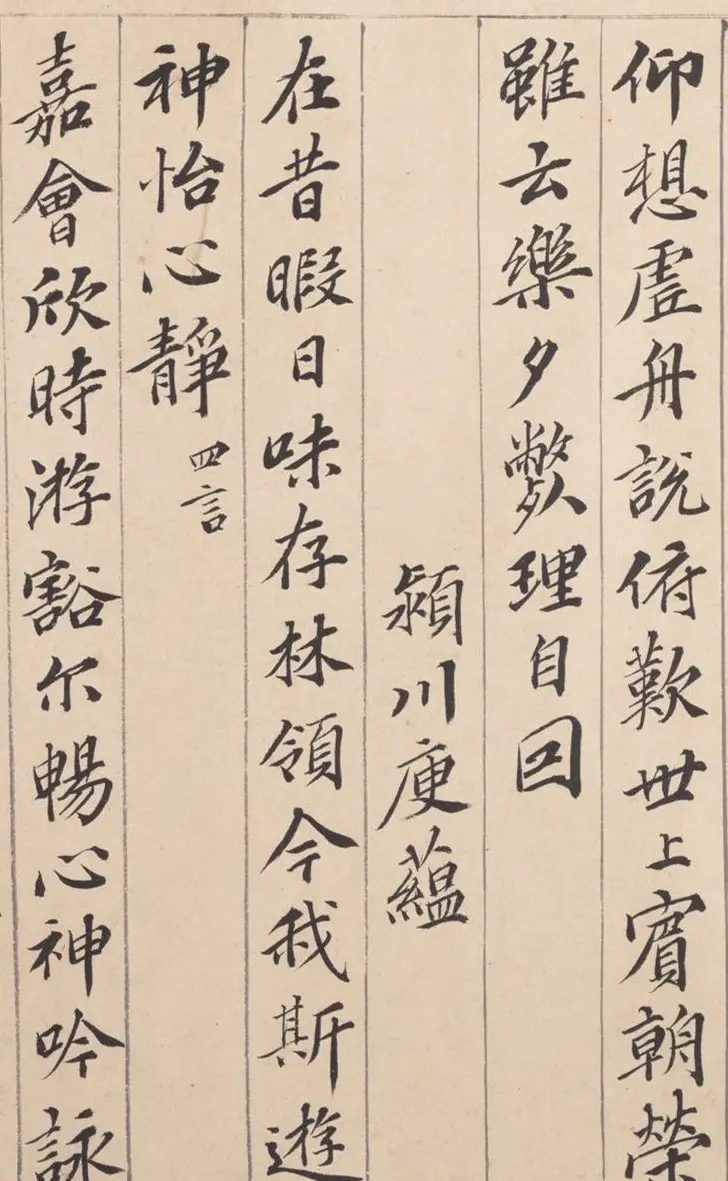 仰想虚舟說俯歎世上賓朝榮
雖云樂夕斃理自回
潁川庾蘊
在昔暇日味存林領今我斯遊
神怡心靜 四言
嘉會欣時游豁尔暢心神吟詠